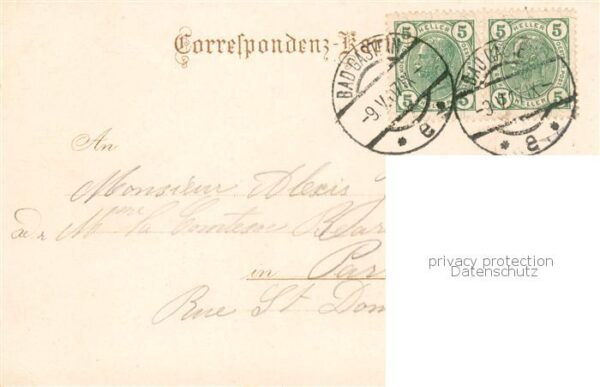 Correspondenz-Ka
5 HELLER 5 5 HELLER 5
BAD GASTEIN
-9.V.07
e
e
An
Monsieur Alexis
Mme la Comtesse
in Par
Rue St Dom
privacy protection
Datenschutz